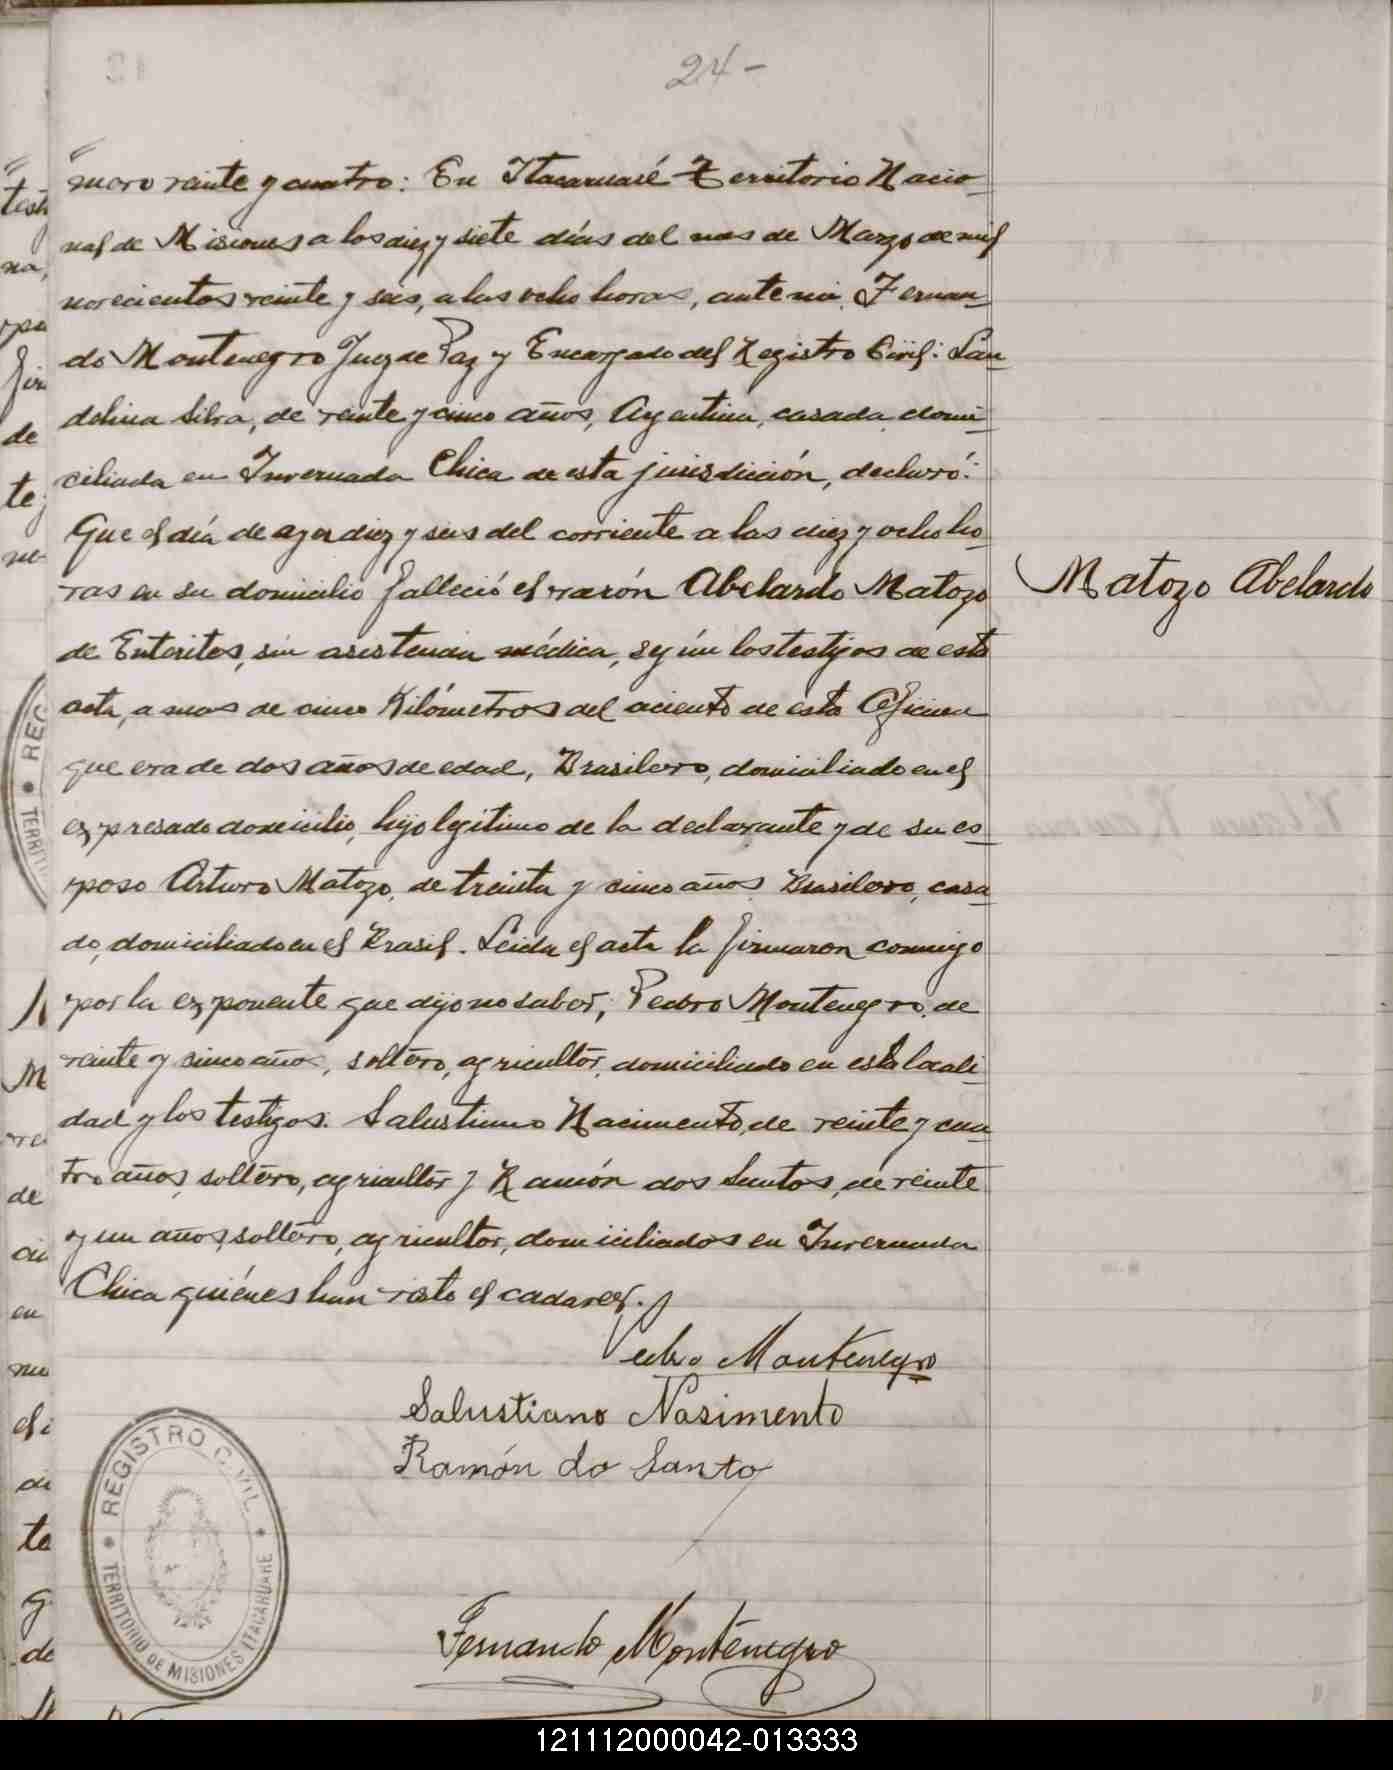 24-
mero veinte y cuatro: En Itacaruaré Territorio Nacio-
nal de Misiones a los diez y siete días del mes de Marzo de mil
novecientos veinte y seis, a las ocho horas, ante mi, Fernan-
do Montenegro Juez de Paz y Encargado del Registro Civil: Lau-
delina Silva, de veinte y cinco años, Argentina, casada, domi-
ciliada en Invernada Chica de esta jurisdicción, declaró:
Que el día de ayer diez y seis del corriente a las diez y ocho ho-
ras en su domicilio falleció el varón Abelardo Matozo
Matozo Abelardo
de Enteritos, sin asistencia médica, según los testigos de esta
acta, a mas de cinco Kilómetros del aciento de esta Oficina
que era de dos años de edad, Brasilero, domiciliado en el
expresado domicilio, hijo legitimo de la declarante y de su es-
poso Arturo Matozo, de treinta y cinco años, Brasilero, casa-
do, domiciliado en el Brasil. Leida el acta la firmaron conmigo
por la exponente que dijo no saber, Pedro Montenegro, de
veinte y cinco años, soltero, agricultor, domiciliado en esta locali-
dad y los testigos: Salustiano Nacimento, de veinte y cua-
tro años, soltero, agricultor y Ramón dos Santos, de veinte
y un años, soltero, agricultor, domiciliados en Invernada
Chica quiénes han visto el cadaver.
Pedro Montenegro
Salustiano Nasimento
Ramón do Santo
REGISTRO CIVIL
TERRITORIO DE MISIONES ITACARUARE
Fernando Montenegro
121112000042-013333